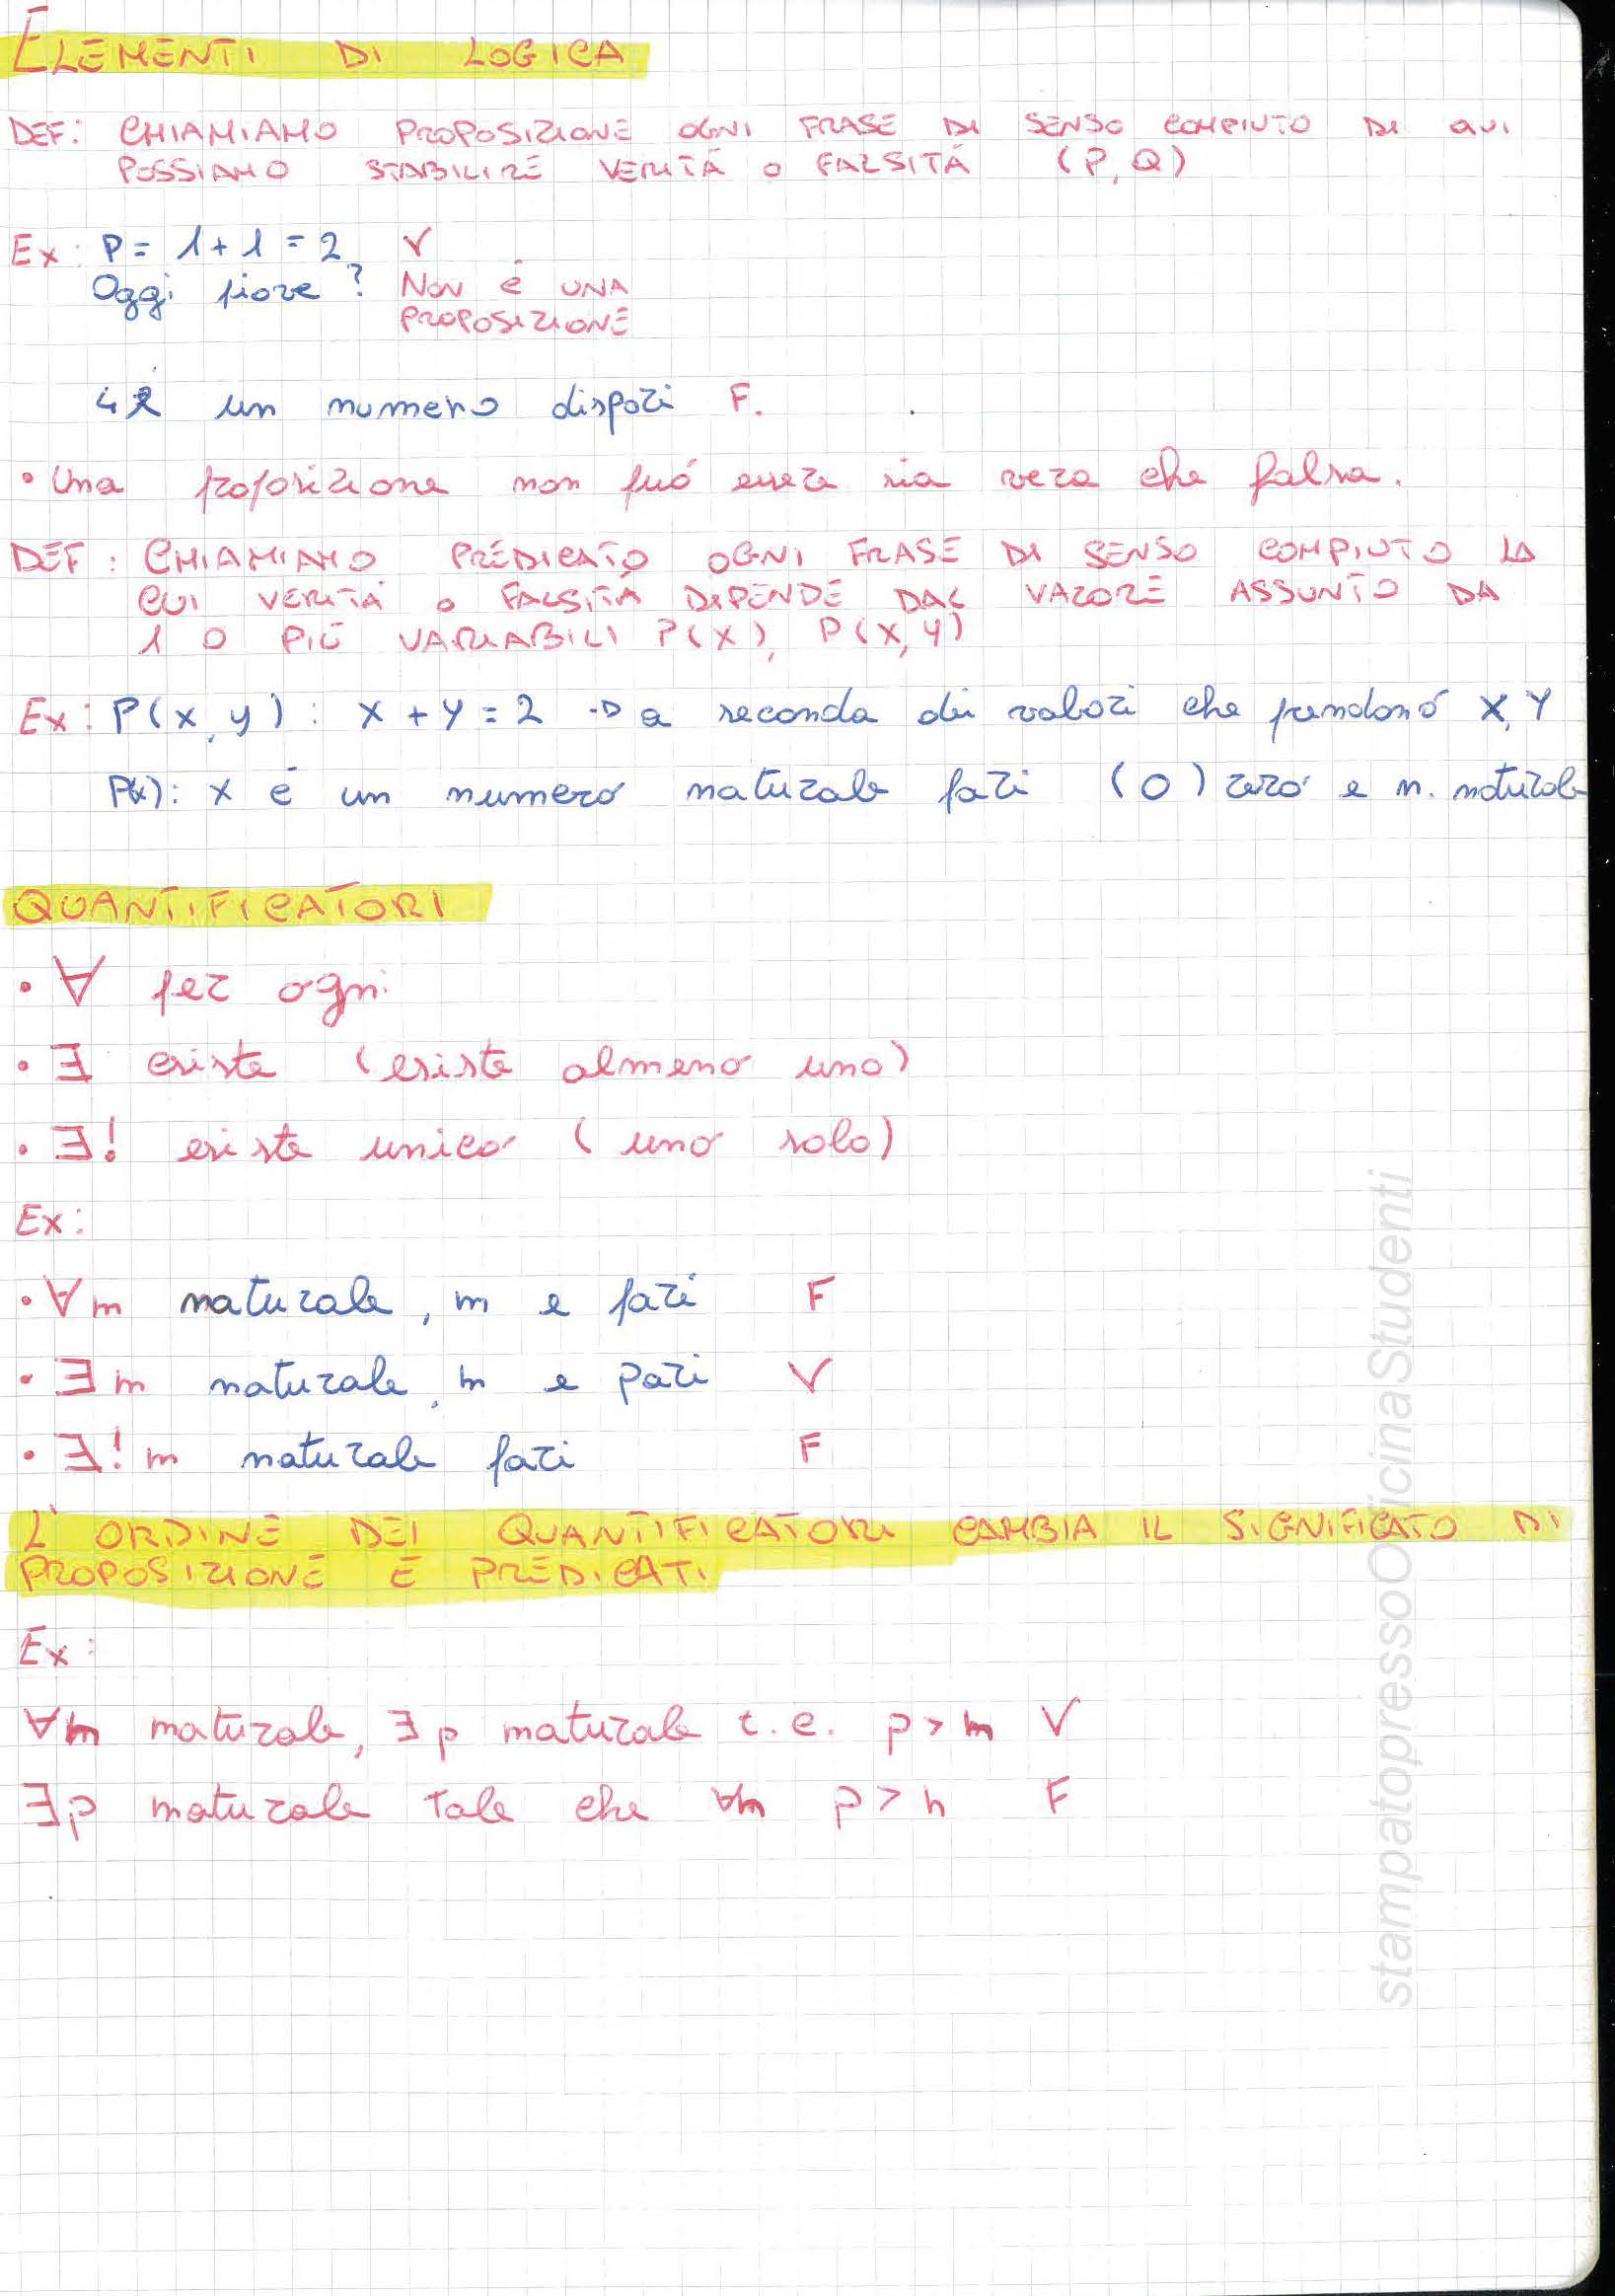 ELEMENTI DI LOGICA
DEF: CHIAMIAMO PROPOSIZIONE OGNI FRASE DI SENSO COMPIUTO DI QUI
POSSIAMO STABILIRE VERITÀ O FALSITÀ (P, Q)
Ex: P = 1 + 1 = 2 V
Oggi piove? NON È UNA
PROPOSIZIONE
4 è un numero dispari F.
• Una proposizione non può essere sia vera che falsa.
DEF: CHIAMIAMO PREDICATO OGNI FRASE DI SENSO COMPIUTO LA
CUI VERITÀ O FALSITÀ DIPENDE DAL VALORE ASSUNTO DA
1 O PIÙ VARIABILI P(X), P(X,Y)
Ex: P(x,y): x + y = 2 → a seconda dei valori che prendono X,Y
P(x): x è un numero naturale pari (0) zero e n. naturale
QUANTIFICATORI
• ∀ per ogni
• ∃ esiste (esiste almeno uno)
• ∃! esiste unico (uno solo)
Ex:
• ∀n naturale, n e pari F
• ∃n naturale, n e pari V
• ∃!n naturale pari F
L'ORDINE DEI QUANTIFICATORI CAMBIA IL SIGNIFICATO DI
PROPOSIZIONE E PREDICATI
Ex:
∀n naturale, ∃p naturale t.c. p>n V
∃p naturale tale che ∀n p>n F
stampatopressoOfficinaStudenti